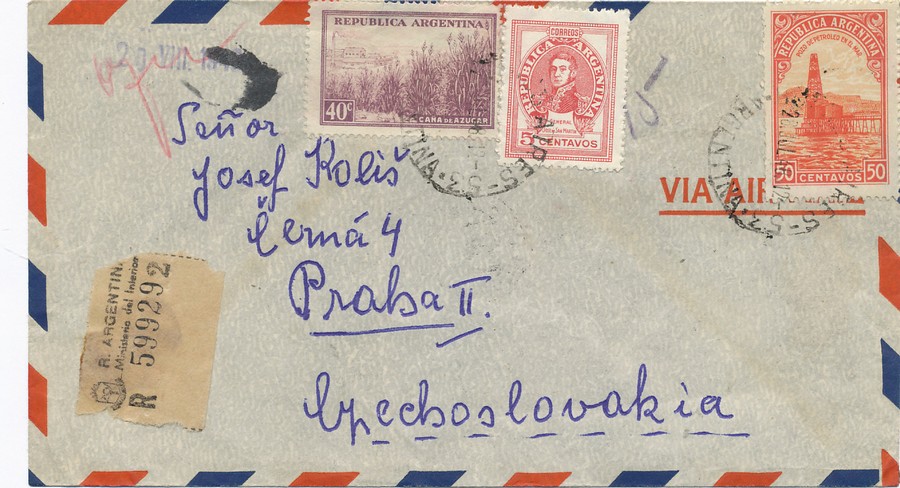 REPUBLICA ARGENTINA
40c
CAÑA DE AZUCAR
CORREOS
REPUBLICA ARGENTINA
GENERAL
JOSE DE SAN MARTIN
5 CENTAVOS
REPUBLICA ARGENTINA
POZO DE PETROLEO EN EL MAR
50 CENTAVOS 50
VIA AIR
Señor
Josef Koliš
Černá 4
Praha II.
Czechoslovakia
R. ARGENTINA
Ministerio del Interior
R 599292